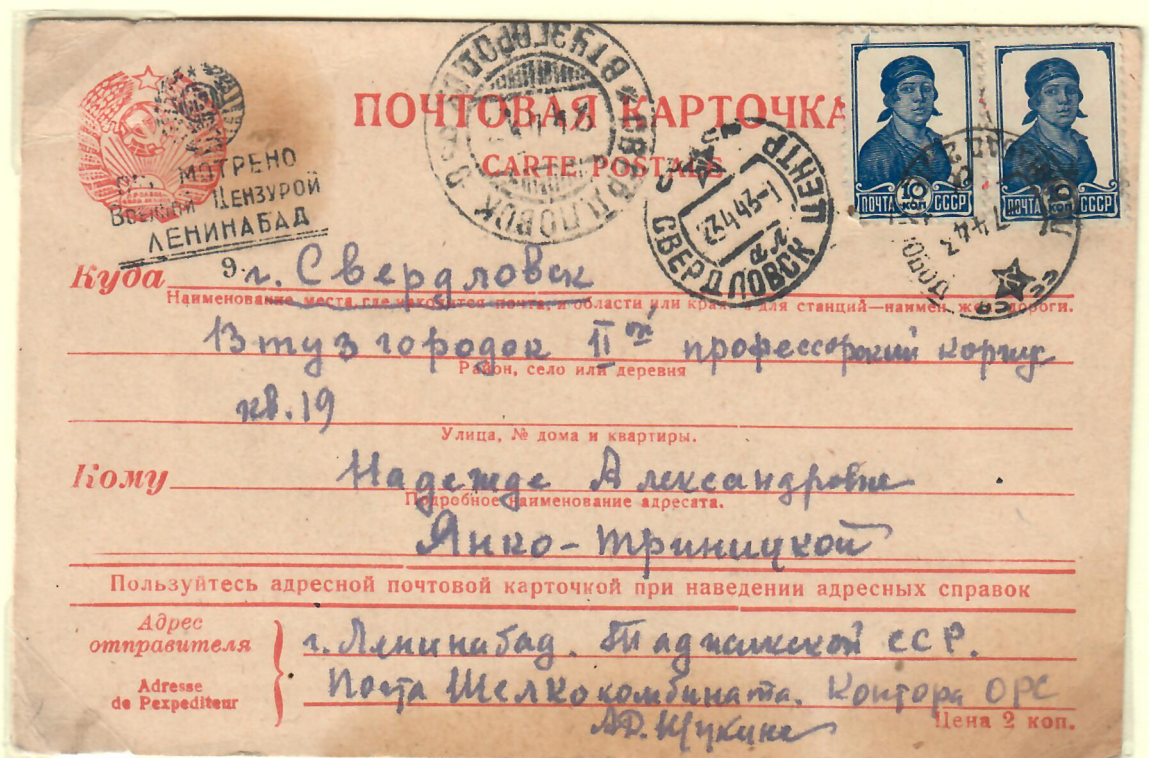 ПОЧТОВАЯ КАРТОЧКА
CARTE POSTALE
ПОЧТА 10 КОП. СССР
ПОЧТА 10 КОП. СССР
МОТРЕНО
Военной Цензурой
ЛЕНИНАБАД
9
СВЕРДЛОВСК ВТУЗГОРОДОК
СВЕРДЛОВСК ЦЕНТР
Куда г. Свердловск
Наименование места, где находится почта, и области или края, а для станций—наимен. жел. дороги.
Втузгородок IIой профессорский корпус
Район, село или деревня
кв. 19
Улица, № дома и квартиры.
Кому Надежде Александровне
Подробное наименование адресата.
Янко-Триницкой
Пользуйтесь адресной почтовой карточкой при наведении адресных справок
Адрес отправителя
Adresse de l'expediteur
г. Ленинабад. Таджикской ССР.
Почта Шелкокомбината. Контора ОРС
Цена 2 коп.
А.Д. Щукина